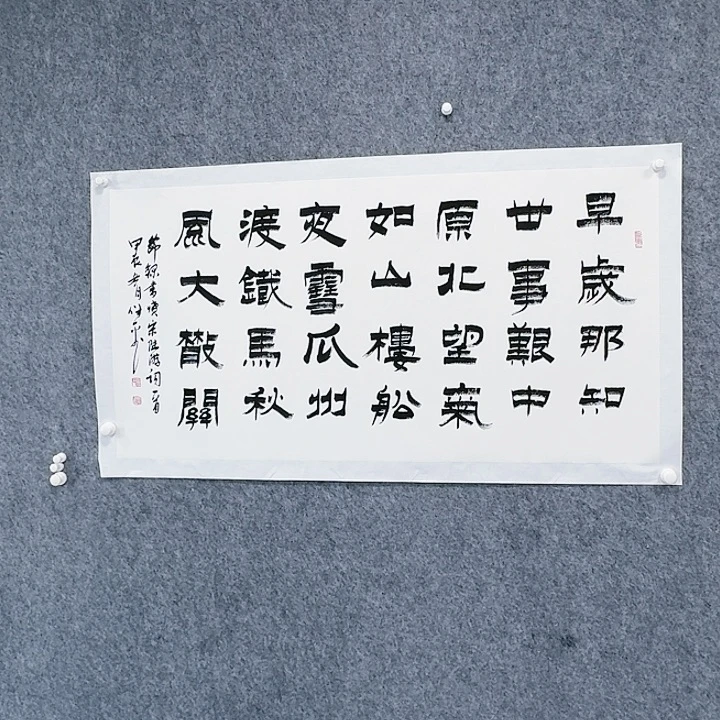 早歲那知
世事艱中
原北望氣
如山樓船
夜雪瓜州
渡鐵馬秋
風大散關
節錄書憤宋陸游詞一首
甲辰春月